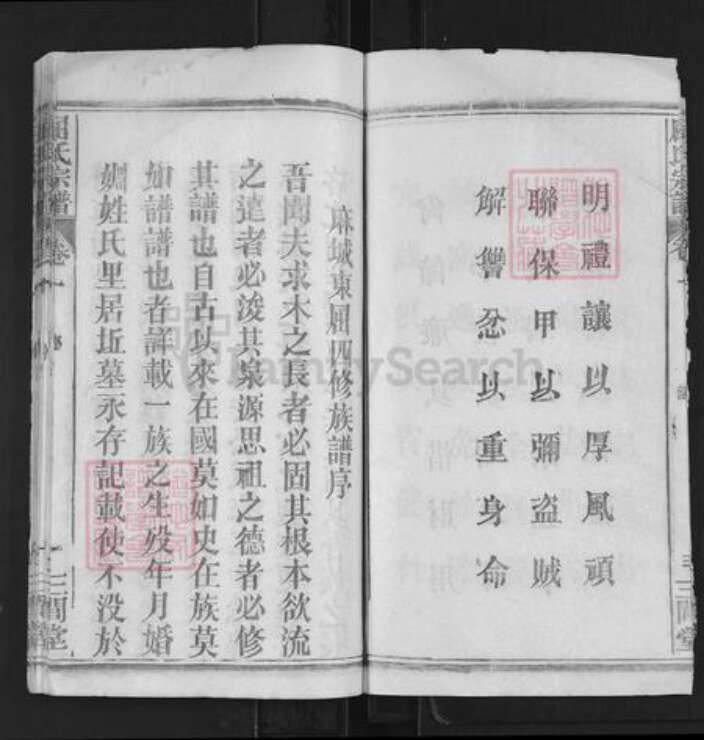 明禮讓以厚風頑
聯保甲以彌盜賊
解讐忿以重身命
三閭堂
麻城東屈四修族譜序
吾聞夫求木之長者必固其根本欲流
之遠者必浚其泉源思祖之德者必修
其譜也自古以來在國莫如史在族莫
如譜譜也者詳載一族之生歿年月婚
姻姓氏里居坵墓永存記載使不没於
屈氏宗譜
卷一
三閭堂
FamilySearch